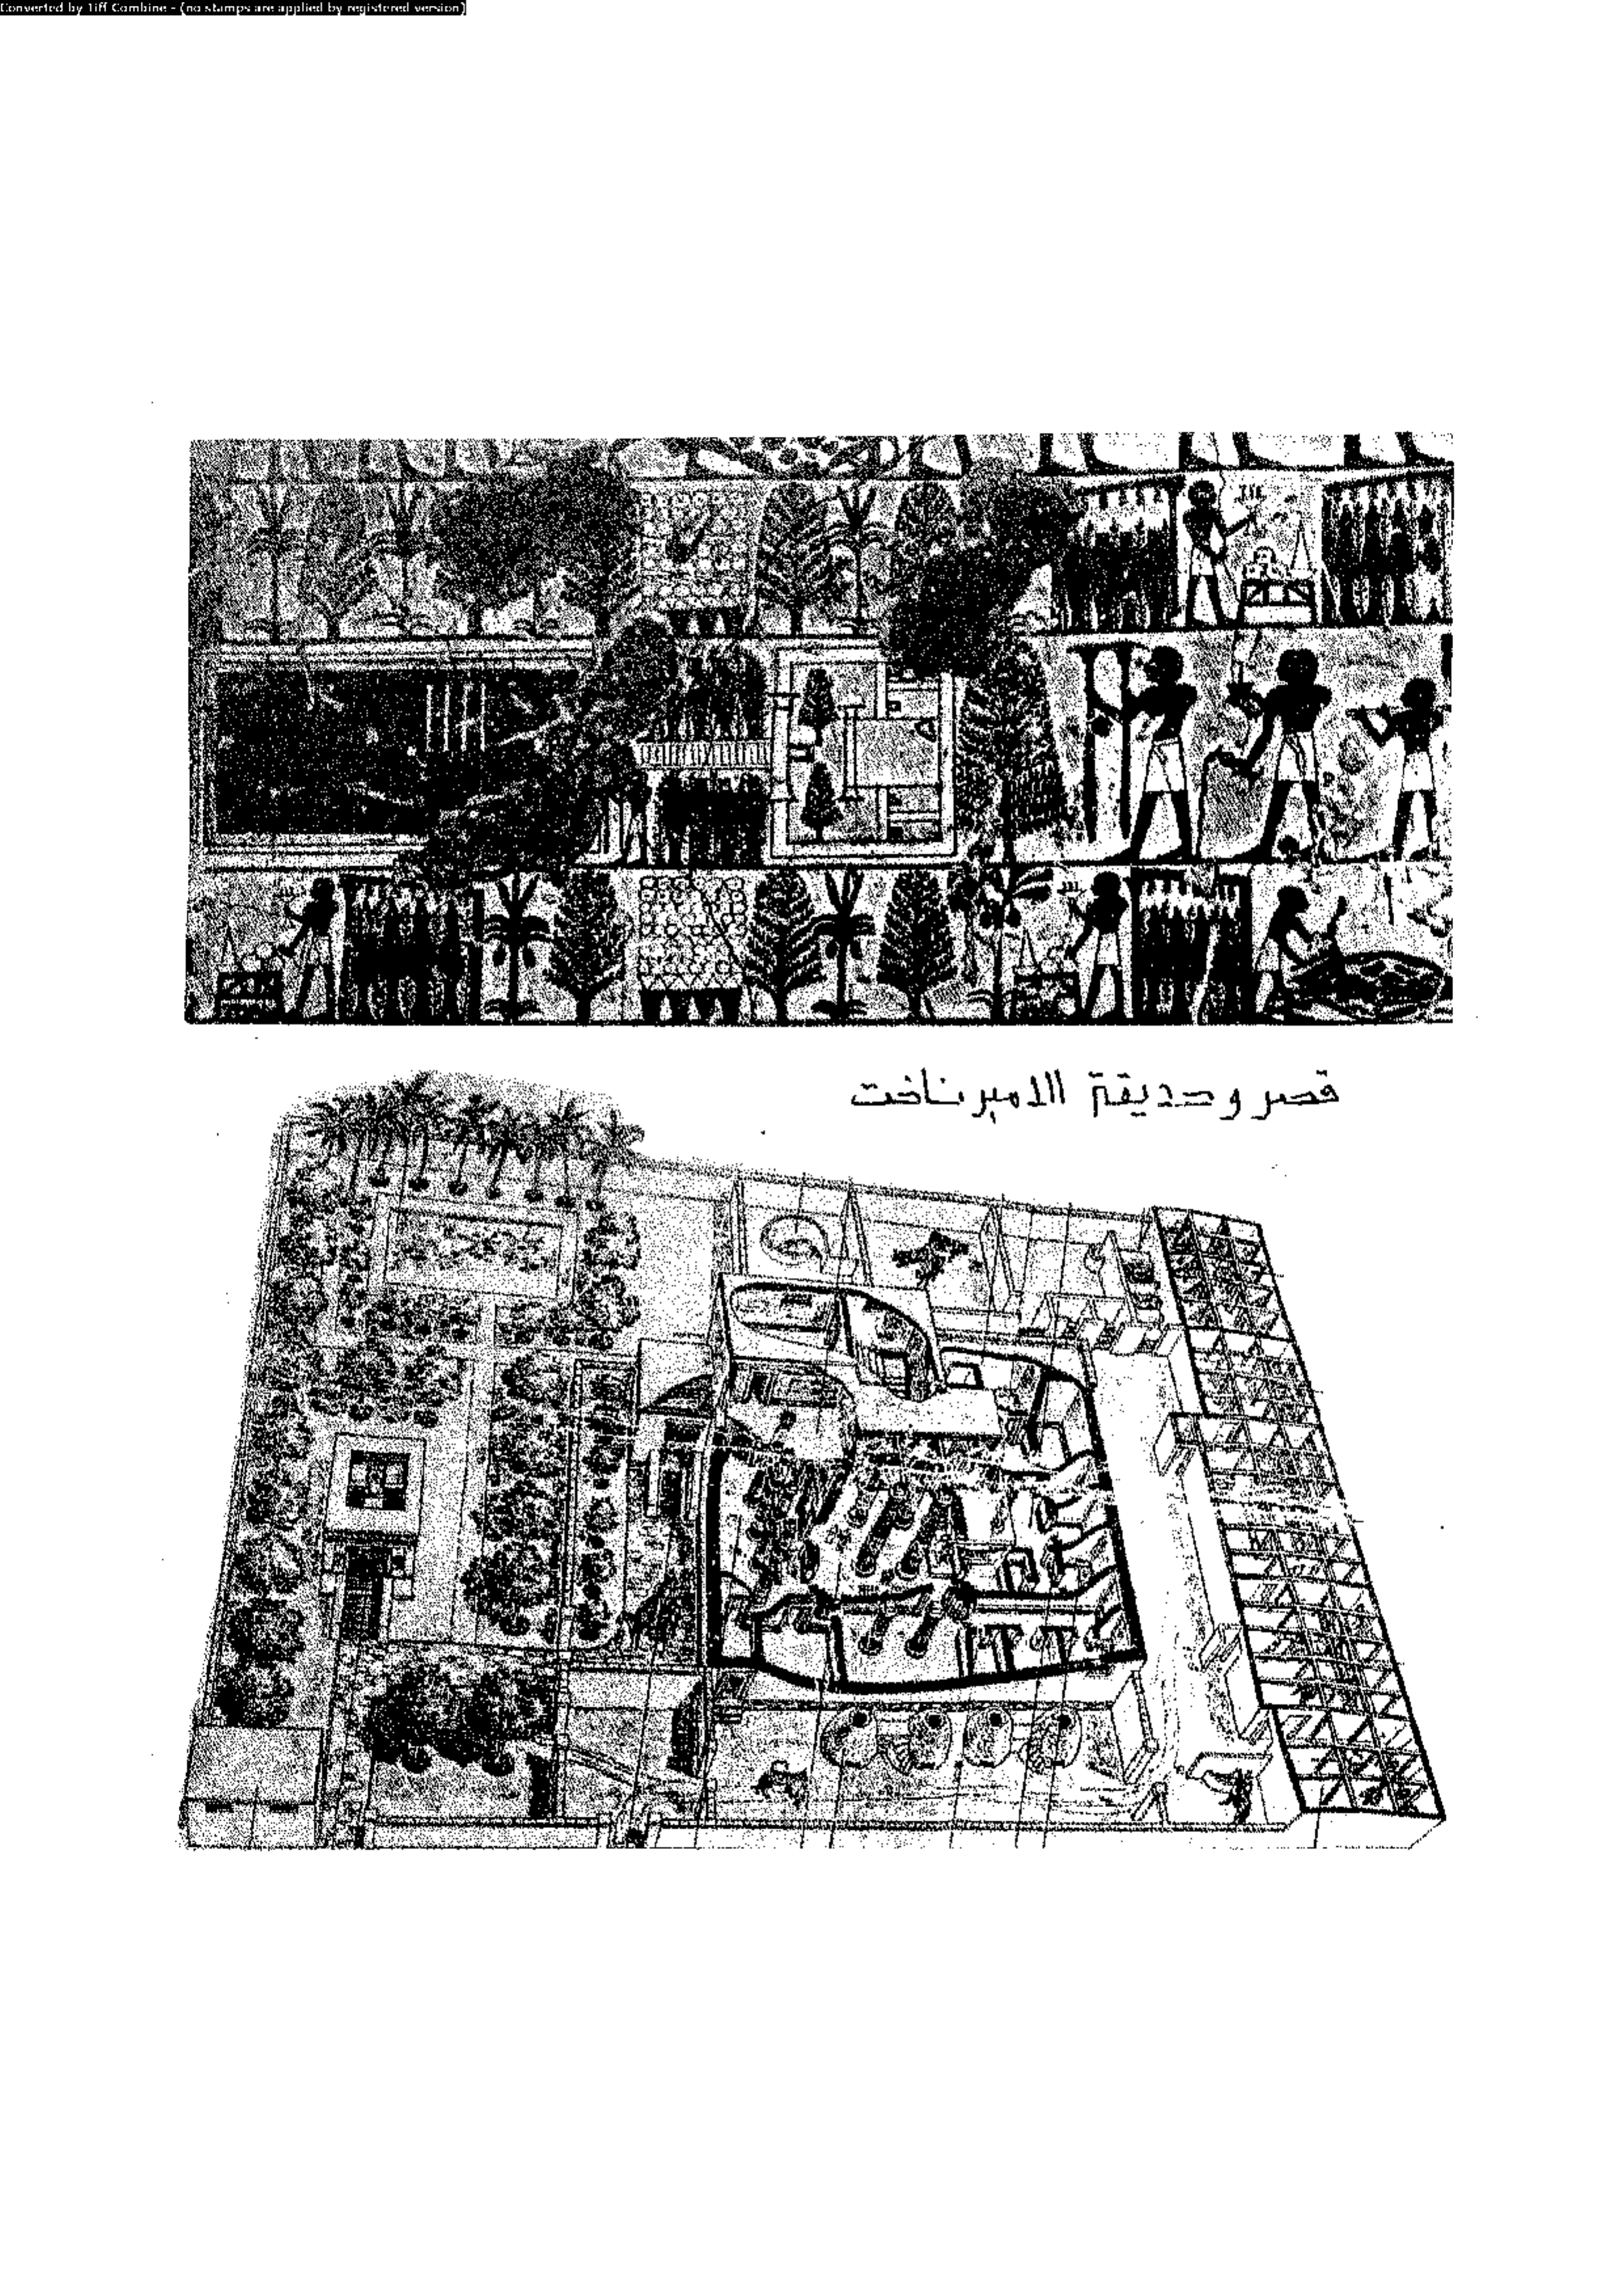 Converted by Tiff Combine - (no stamps are applied by registered version)
قصر وحديقة الامير ناخت